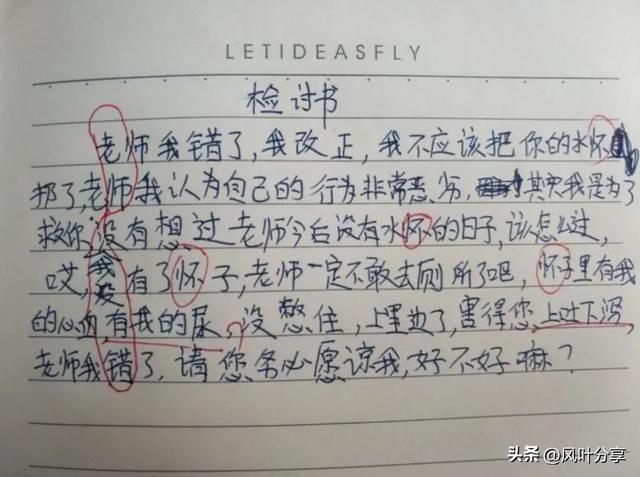 LETIDEASFLY
检讨书
老师我错了,我改正,我不应该把你的水怀
扔了,老师我认为自己的行为非常恶劣,其实我是为了
救你,没有想过老师今后没有水怀的日子,该怎么过,
哎,我没有了怀子,老师一定不敢去厕所了吧,怀子里有我
的心血,有我的尿,没憋住,上里边了,害得您上吐下泻,
老师我错了,请您务必愿谅我,好不好嘛?
头条@风叶分享